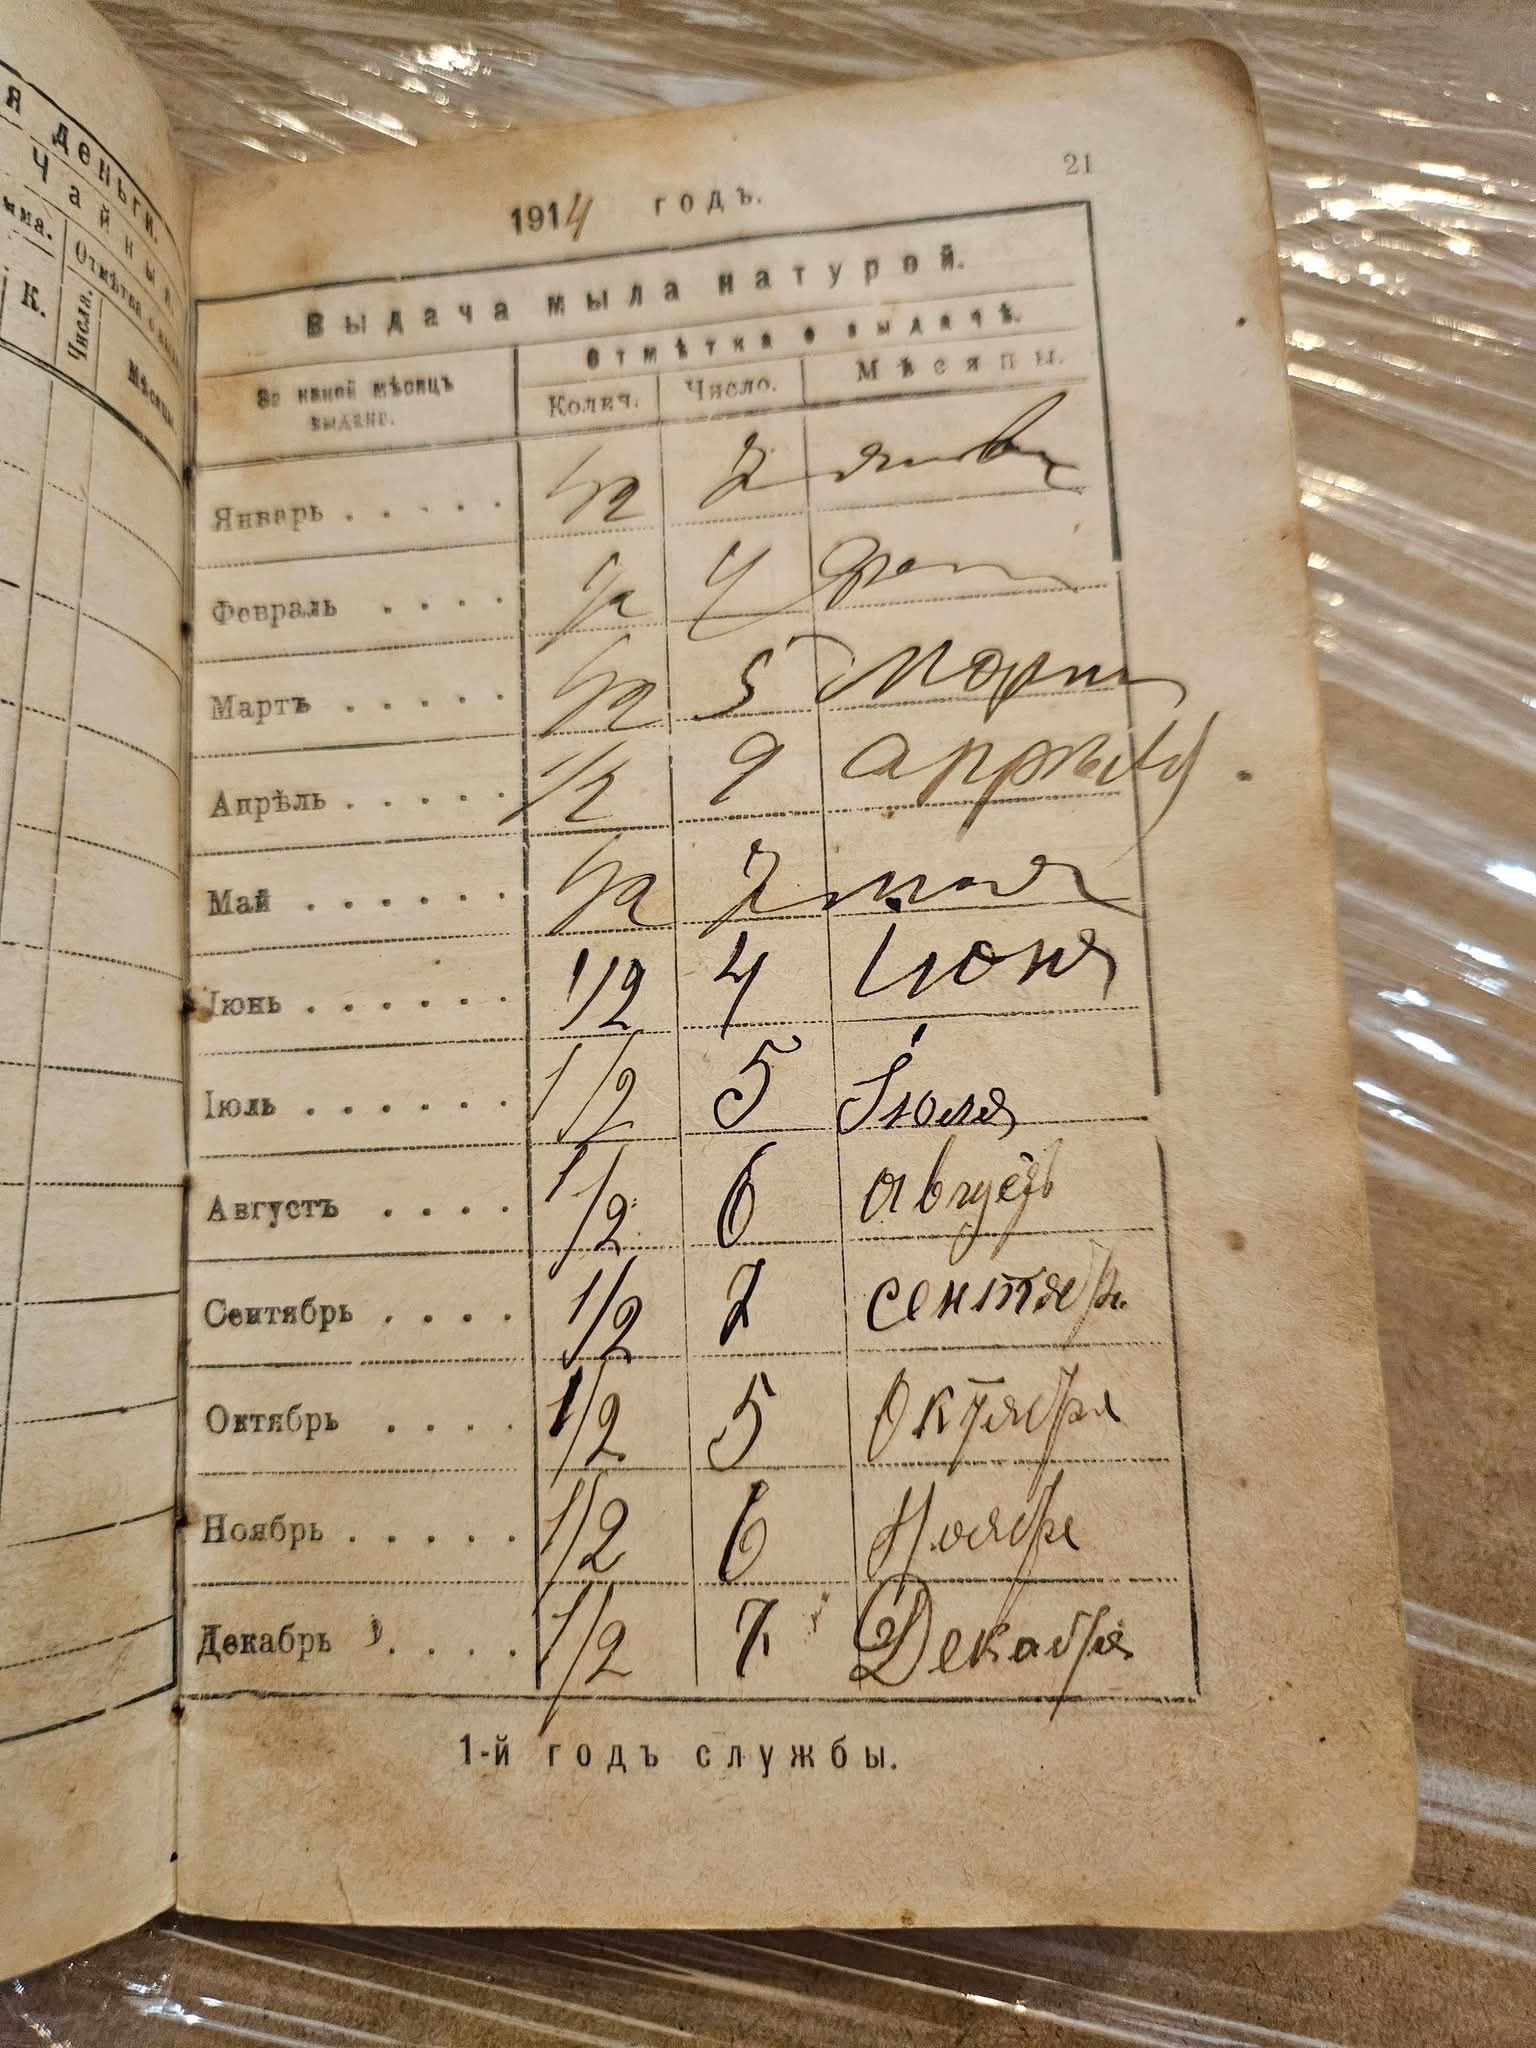 я деньги.
Чайныя.
К.
Числа.
21
1914 годъ.
Выдача мыла натурой.
За какой мѣсяцъ выдано.
Отмѣтка о выдачѣ.
Колич. Число. Мѣсяцы.
Январь . . . . . 1/2 7
Февраль . . . . 1/2 4
Мартъ . . . . . 1/2 5 марта
Апрѣль . . . . . 1/2 9
Май . . . . . . 1/2 7 мая
Іюнь . . . . . . 1/2 4 Июня
Іюль . . . . . . 1/2 5 Іюля
Августъ . . . . 1/2 6
Сентябрь . . . . 1/2 7 сентябр.
Октябрь . . . . 1/2 5 Октября
Ноябрь . . . . . 1/2 6 Ноября
Декабрь . . . . 1/2 7. Декабря
1-й годъ службы.